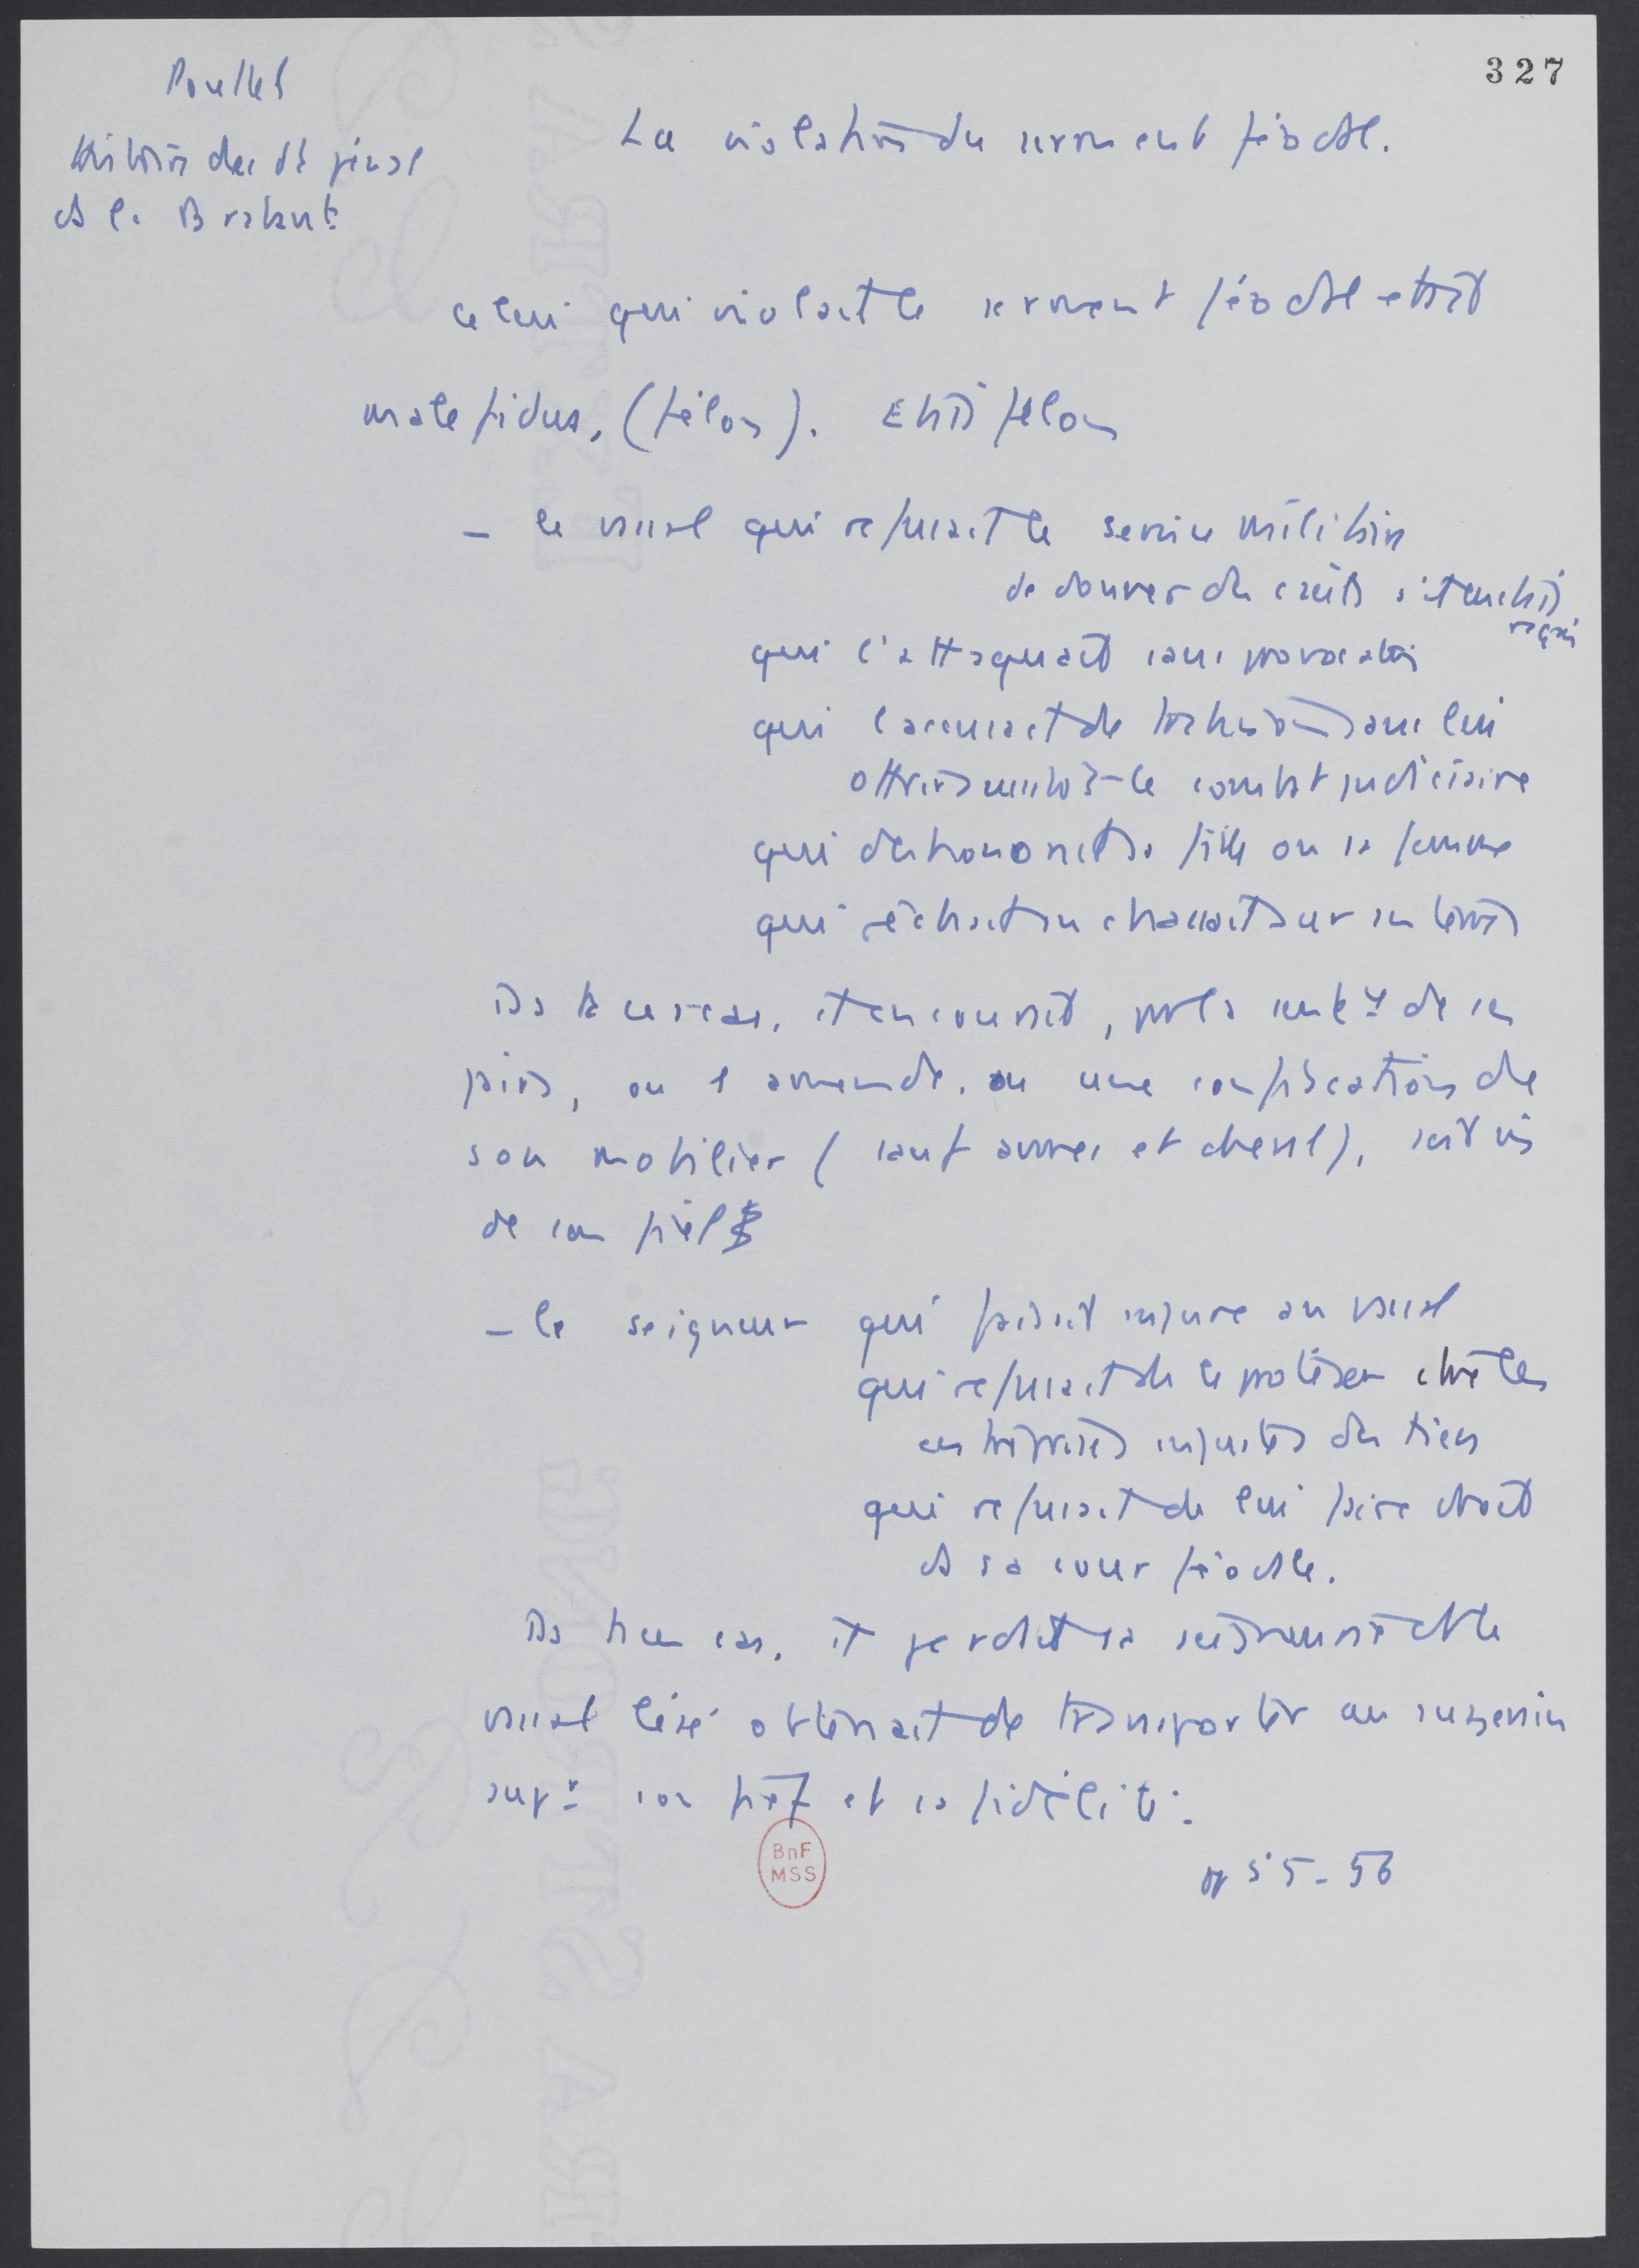 327
Poullet
Histoire du dt pénal
ds le Brabant
La violation du serment féodal.
Celui qui violait le serment féodal était
male fidus, (félon). Etait félon
– le vassal qui refusait le service militaire
de donner des
qui l'attaquait sans provocation
qui l'accusait de trahison sans lui
offrir aussitôt le combat judiciaire
qui deshonorait sa fille ou sa femme
qui pêchait ou chassait sur ses terres
Ds ts ces cas, il encourait, par la sentce de ses
pairs, ou l'amende, ou une confiscation de
son mobilier (sauf armes et cheval), soit
de son fief
– le seigneur qui faisait injure au vassal
qui refusait de le protéger contre les
entreprises injustes des tiers
qui refusait de lui faire droit
ds sa cour féodale.
Ds ts ces cas, il perdait sa suzeraineté et le
vassal lésé obtenait de transporter au suzerain
supr son fief et sa fidélité.
pp 55-56
BnF
MSS